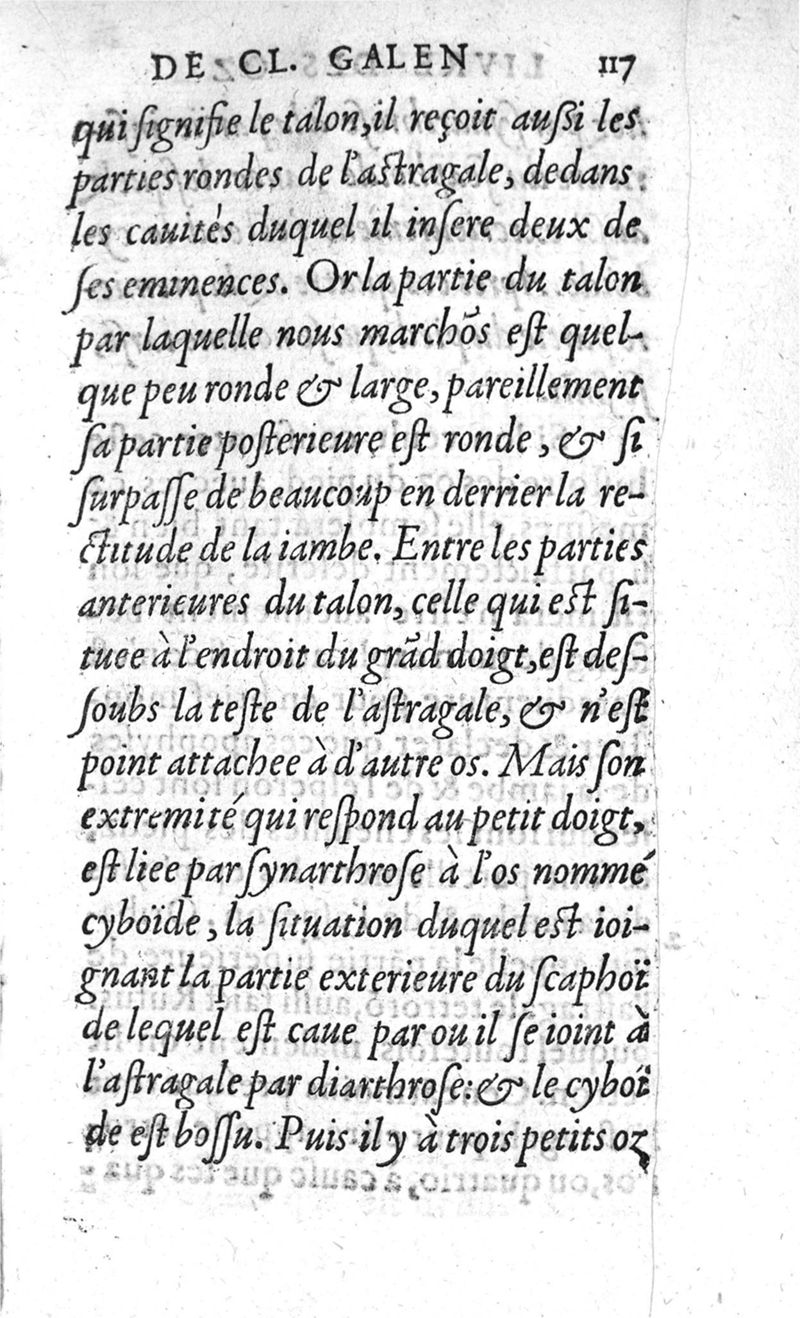 DE CL. GALEN 117
qui ſignifie le talon, il reçoit auſſi les
parties rondes de l'aſtragale, dedans
les cauités duquel il inſere deux de
ſes eminences. Or la partie du talon
par laquelle nous marchõs eſt quel-
que peu ronde & large, pareillement
ſa partie poſterieure eſt ronde, & ſi
ſurpaſſe de beaucoup en derrier la re-
ctitude de la iambe. Entre les parties
anterieures du talon, celle qui eſt ſi-
tuee à l'endroit du grãd doigt, eſt deſ-
ſoubs la teſte de l'aſtragale, & n'eſt
point attachee à d'autre os. Mais ſon
extremité qui reſpond au petit doigt,
eſt liee par ſynarthroſe à l'os nommé
cyboïde, la ſituation duquel eſt ioi-
gnant la partie exterieure du ſcaphoï
de lequel eſt caue par ou il ſe ioint à
l'aſtragale par diarthroſe: & le cyboï
de eſt boſſu. Puis il y à trois petits oz